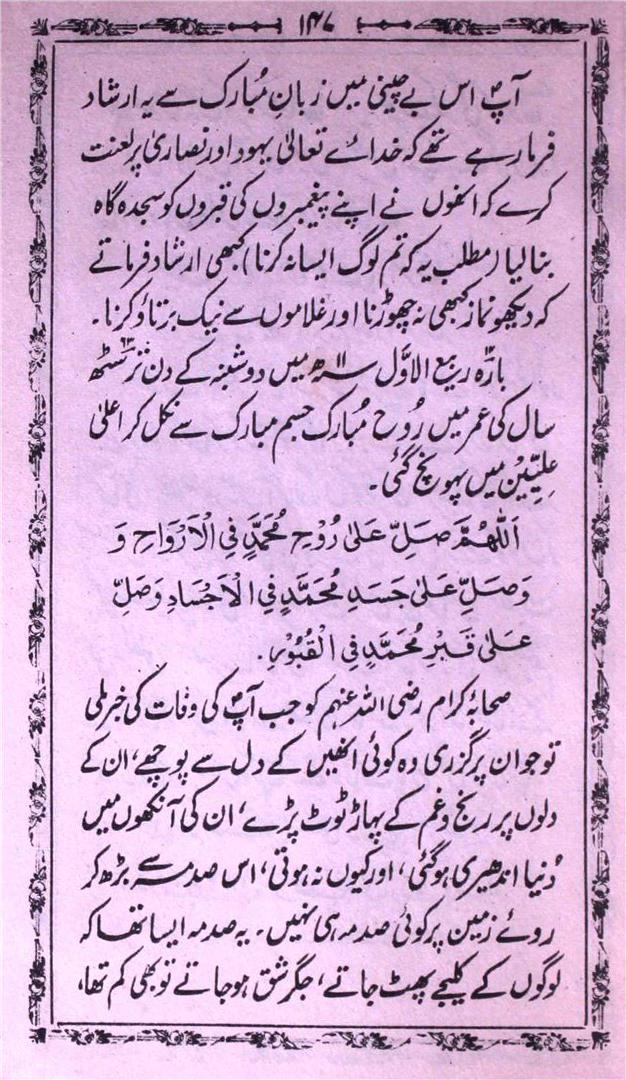 ۱۴۷
آپؐ اس بے چینی میں زبانِ مُبارک سے یہ ارشاد
فرما رہے تھے کہ خدائے تعالیٰ یہود اور نصاریٰ پر لعنت
کرے کہ انھوں نے اپنے پیغمبروں کی قبروں کو سجدہ گاہ
بنالیا (مطلب یہ کہ تم لوگ ایسا نہ کرنا) کبھی ارشاد فرماتے
کہ دیکھو نماز کبھی نہ چھوڑنا اور غلاموں سے نیک برتاؤ کرنا۔
بارہ ربیع الاوَّل ۱۱ سنہ ھ میں دوشنبہ کے دن ترسٹھ
سال کی عمر میں رُوح مُبارک جسم مبارک سے نکل کر اعلیٰ
عِلِیِّیْن میں پہونچ گئی۔
اَللّٰهُمَّ صَلِّ عَلٰى رُوْحِ مُحَمَّدٍ فِي الْاَرْوَاحِ وَ
وَصَلِّ عَلٰى جَسَدِ مُحَمَّدٍ فِي الْاَجْسَادِ وَصَلِّ
عَلٰى قَبْرِ مُحَمَّدٍ فِي الْقُبُوْرِ.
صحابۂ کرام رضی اللہ عنہم کو جب آپؐ کی وفات کی خبر ملی
تو جو ان پر گزری وہ کوئی انھیں کے دل سے پوچھے، ان کے
دلوں پر رنج و غم کے پہاڑ ٹوٹ پڑے، ان کی آنکھوں میں
دُنیا اندھیری ہوگئی، اور کیوں نہ ہوتی، اس صدمہ سے بڑھ کر
روئے زمین پر کوئی صدمہ ہی نہیں۔ یہ صدمہ ایسا تھا کہ
لوگوں کے کلیجے پھٹ جاتے، جگر شق ہو جاتے تو بھی کم تھا،